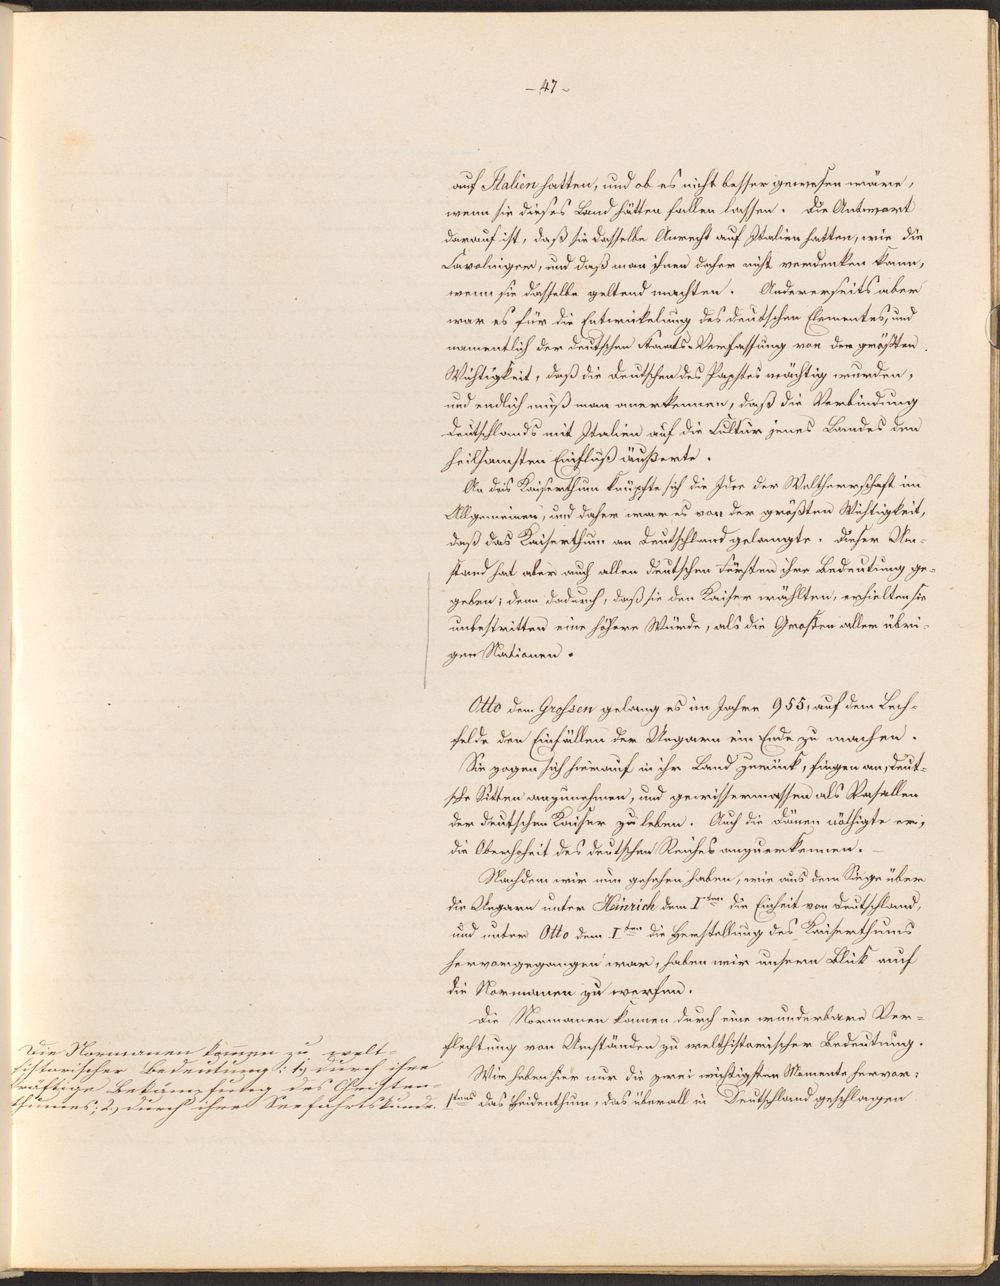 – 47 –
auf Italien hatten, und ob es nicht besser gewesen wäre,
wenn sie dieses Land hätten fallen lassen. Die Antwort
darauf ist, daß sie dasselbe Anrecht auf Italien hatten, wie die
Carolinger, und daß man ihnen daher nicht verdenken kann,
wenn sie dasselbe geltend machten. Andererseits aber
war es für die Entwickelung des deutschen Elementes, und
namentlich der deutschen Staats-Verfassung von der größten
Wichtigkeit, daß die Deutschen des Papstes mächtig wurden,
und endlich muß man anerkennen, daß die Verbindung
Deutschlands mit Italien auf die Cultur jenes Landes den
heilsamsten Einfluß äußerte.
An das Kaiserthum knüpfte sich die Idee der Weltherrschaft im
Allgemeinen, und daher war es von der größten Wichtigkeit,
daß das Kaiserthum an Deutschland gelangte. Dieser Um-
stand hat aber auch allen deutschen Fürsten ihre Bedeutung ge-
geben; denn dadurch, daß sie den Kaiser wählten, erhielten sie
unbestritten eine höhere Würde, als die Großen aller übri-
gen Nationen.
Otto dem Grossen gelang es im Jahre 955, auf dem Lech-
felde den Einfällen der Ungarn ein Ende zu machen.
Sie zogen sich hierauf in ihr Land zurück, fingen an, deut-
sche Sitten anzunehmen, und gewissermassen als Vasallen
der deutschen Kaiser zu leben. Auch die Dänen nöthigte er,
die Oberhoheit des deutschen Reiches anzuerkennen. –
Nachdem wir nun gesehen haben, wie aus dem Siege über
die Ungarn unter Heinrich dem Iten die Einheit von Deutschland,
und unter Otto dem Iten die Herstellung des Kaiserthums
hervorgegangen war, haben wir unsern Blick auf
die Normanen zu werfen.
Die Normanen kamen durch eine wunderbare Ver-
flechtung von Umständen zu welthistorischer Bedeutung.
Wir heben hier nur die zwei wichtigsten Momente hervor:
1tens das Heidenthum, das überall in Deutschland geschlagen
Die Normanen kommen zu welt-
historischer Bedeutung: 1, durch ihre
kräftige Bekämpfung des Christen-
thumes; 2, durch ihre Seefahrtskunde.